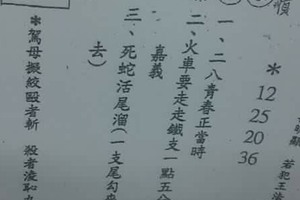 * 12 25 20 36
一、二八青春正當時
二、火車要走走鐵支一點五分
嘉義
三、死蛇活尾溜(一支尾勾
去)
*駕母擬絞毆者斬 殺者凌
若犯王法